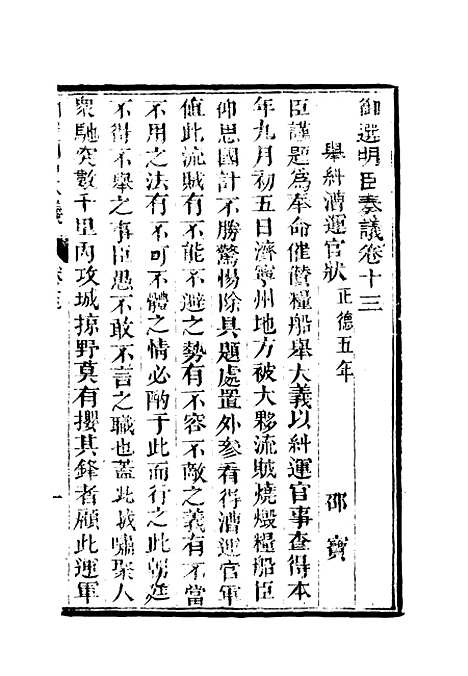 御選明臣奏議卷十三
舉糾漕運官狀 正德五年 邵寶
臣謹題為奉命催儹糧船舉大義以糾運官事查得本
年九月初五日濟寧州地方被大夥流賊燒燬糧船臣
仰思國計不勝驚惕除具題處置外參看得漕運官軍
值此流賊有不能不避之勢有不容不敵之義有不當
不用之法有不可不體之情必酌于此而行之此朝廷
不得不舉之事臣愚不敢不言之職也蓋此賊嘯聚人
衆馳突數千里內攻城掠野莫有攖其鋒者顧此運軍
一